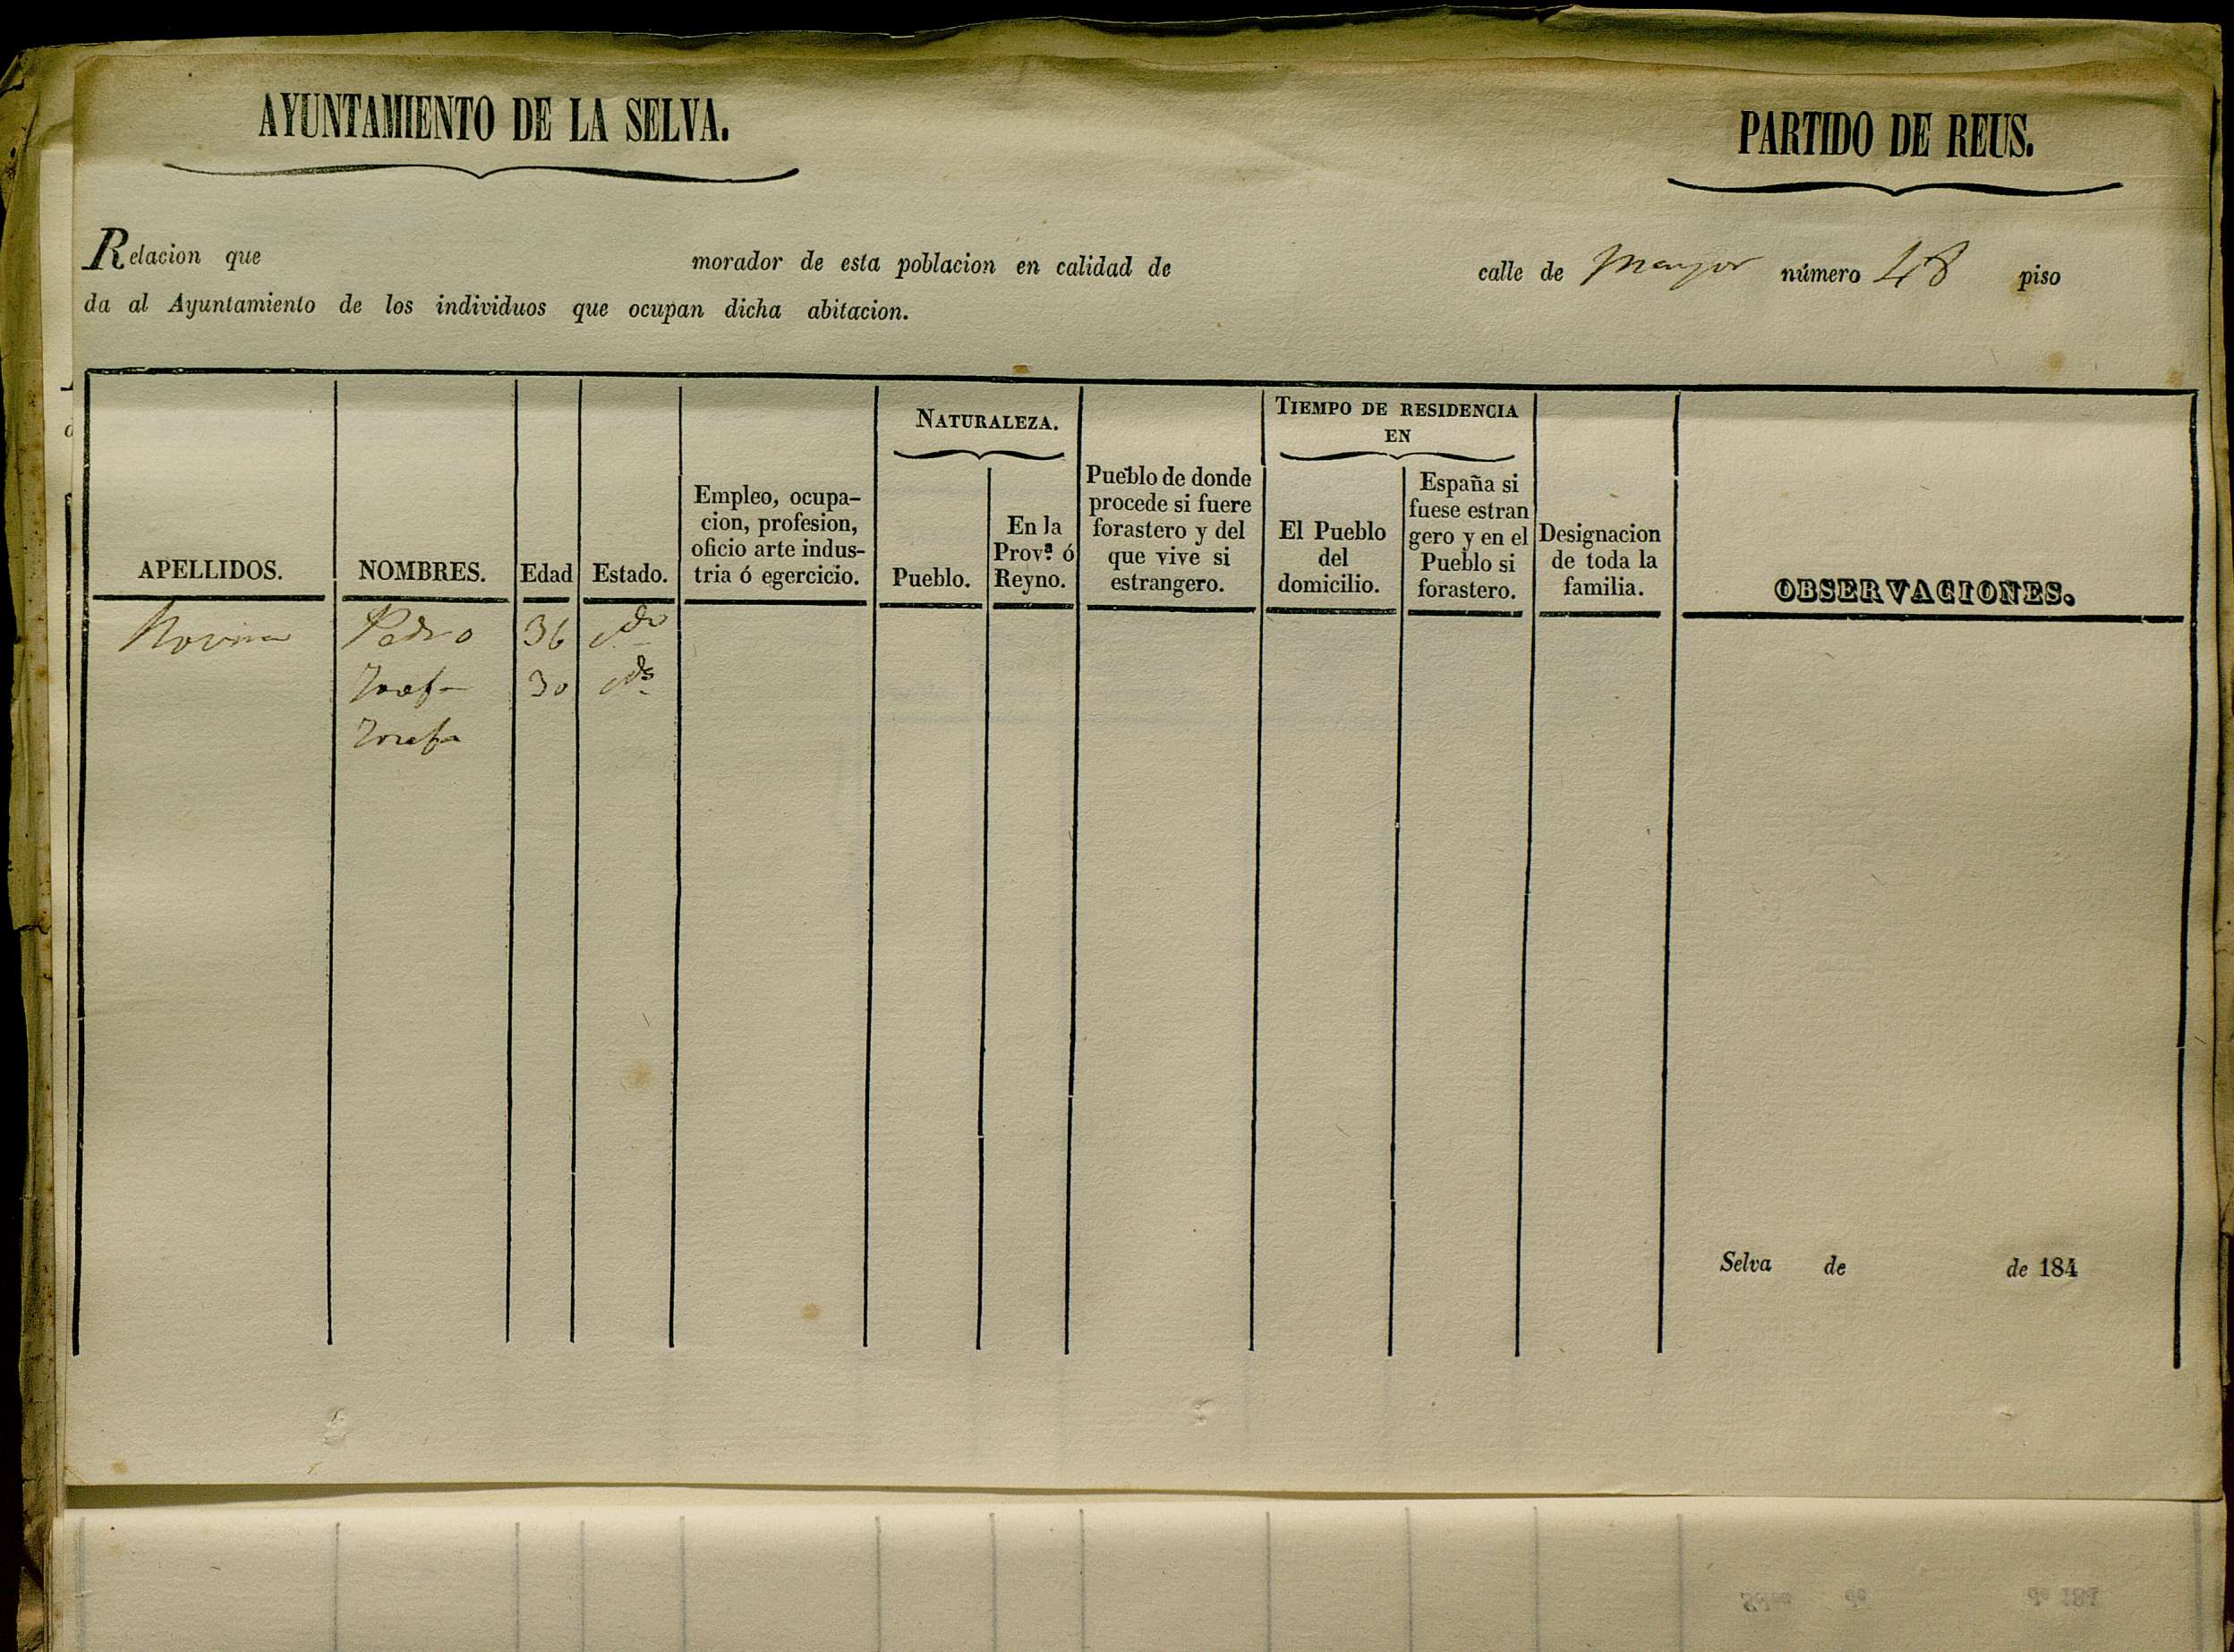 AYUNTAMIENTO DE LA SELVA.
PARTIDO DE REUS.
Relacion que morador de esta poblacion en calidad de calle de Mayor número 48 piso
da al Ayuntamiento de los individuos que ocupan dicha abitacion.
APELLIDOS.
NOMBRES.
Edad
Estado.
Empleo, ocupa-
cion, profesion,
oficio arte indus-
tria ó egercicio.
NATURALEZA.
Pueblo.
En la
Prov.ª ó
Reyno.
Pueblo de donde
procede si fuere
forastero y del
que vive si
estrangero.
TIEMPO DE RESIDENCIA
EN
El Pueblo
del
domicilio.
España si
fuese estran
gero y en el
Pueblo si
forastero.
Designacion
de toda la
familia.
OBSERVACIONES.
Pedro 36
Josefa 30
Josefa
Selva de de 184